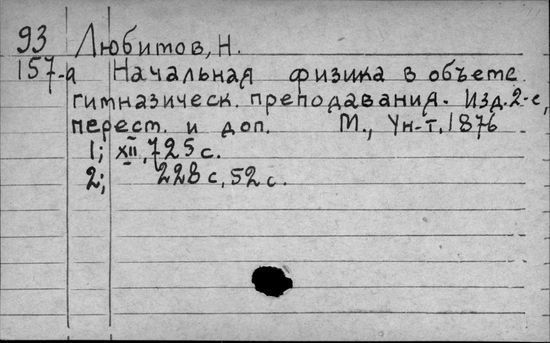 93 Любитов, Н.
157-а Начальная физика в объеме
гимназическ. преподавания. Изд. 2-е,
перест. и доп. М., Ун-т, 1876
1; XII, 725 с.
2; 228 с, 52 с.